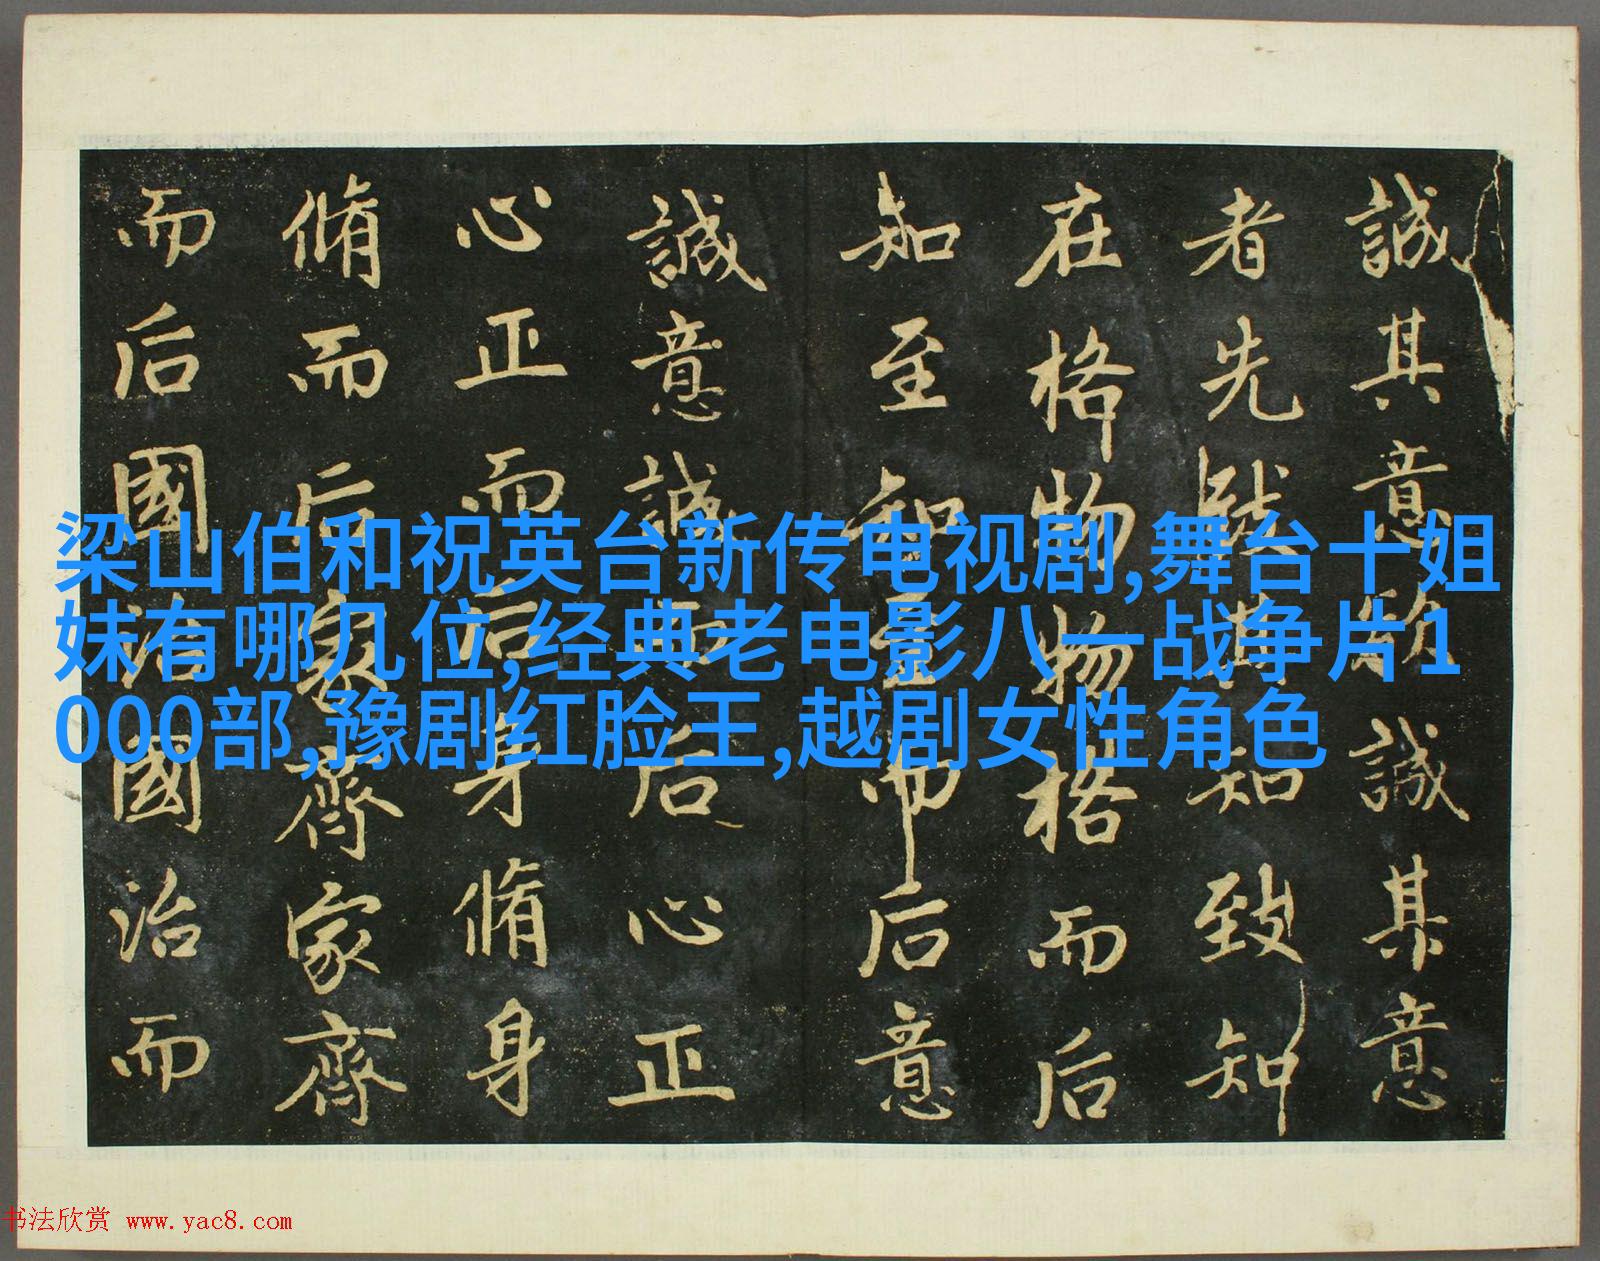 誠其意欲誠其意
者先致其知致知
在格物物格而后
知至知至而后意
誠意誠而后心正
心正而后身脩身
脩而后家齊家齊
而后國治國治而
梁山伯和祝英台新传电视剧,舞台十姐
妹有哪几位,经典老电影八一战争片1
000部,豫剧红脸王,越剧女性角色
书法欣赏 www.yac8.com